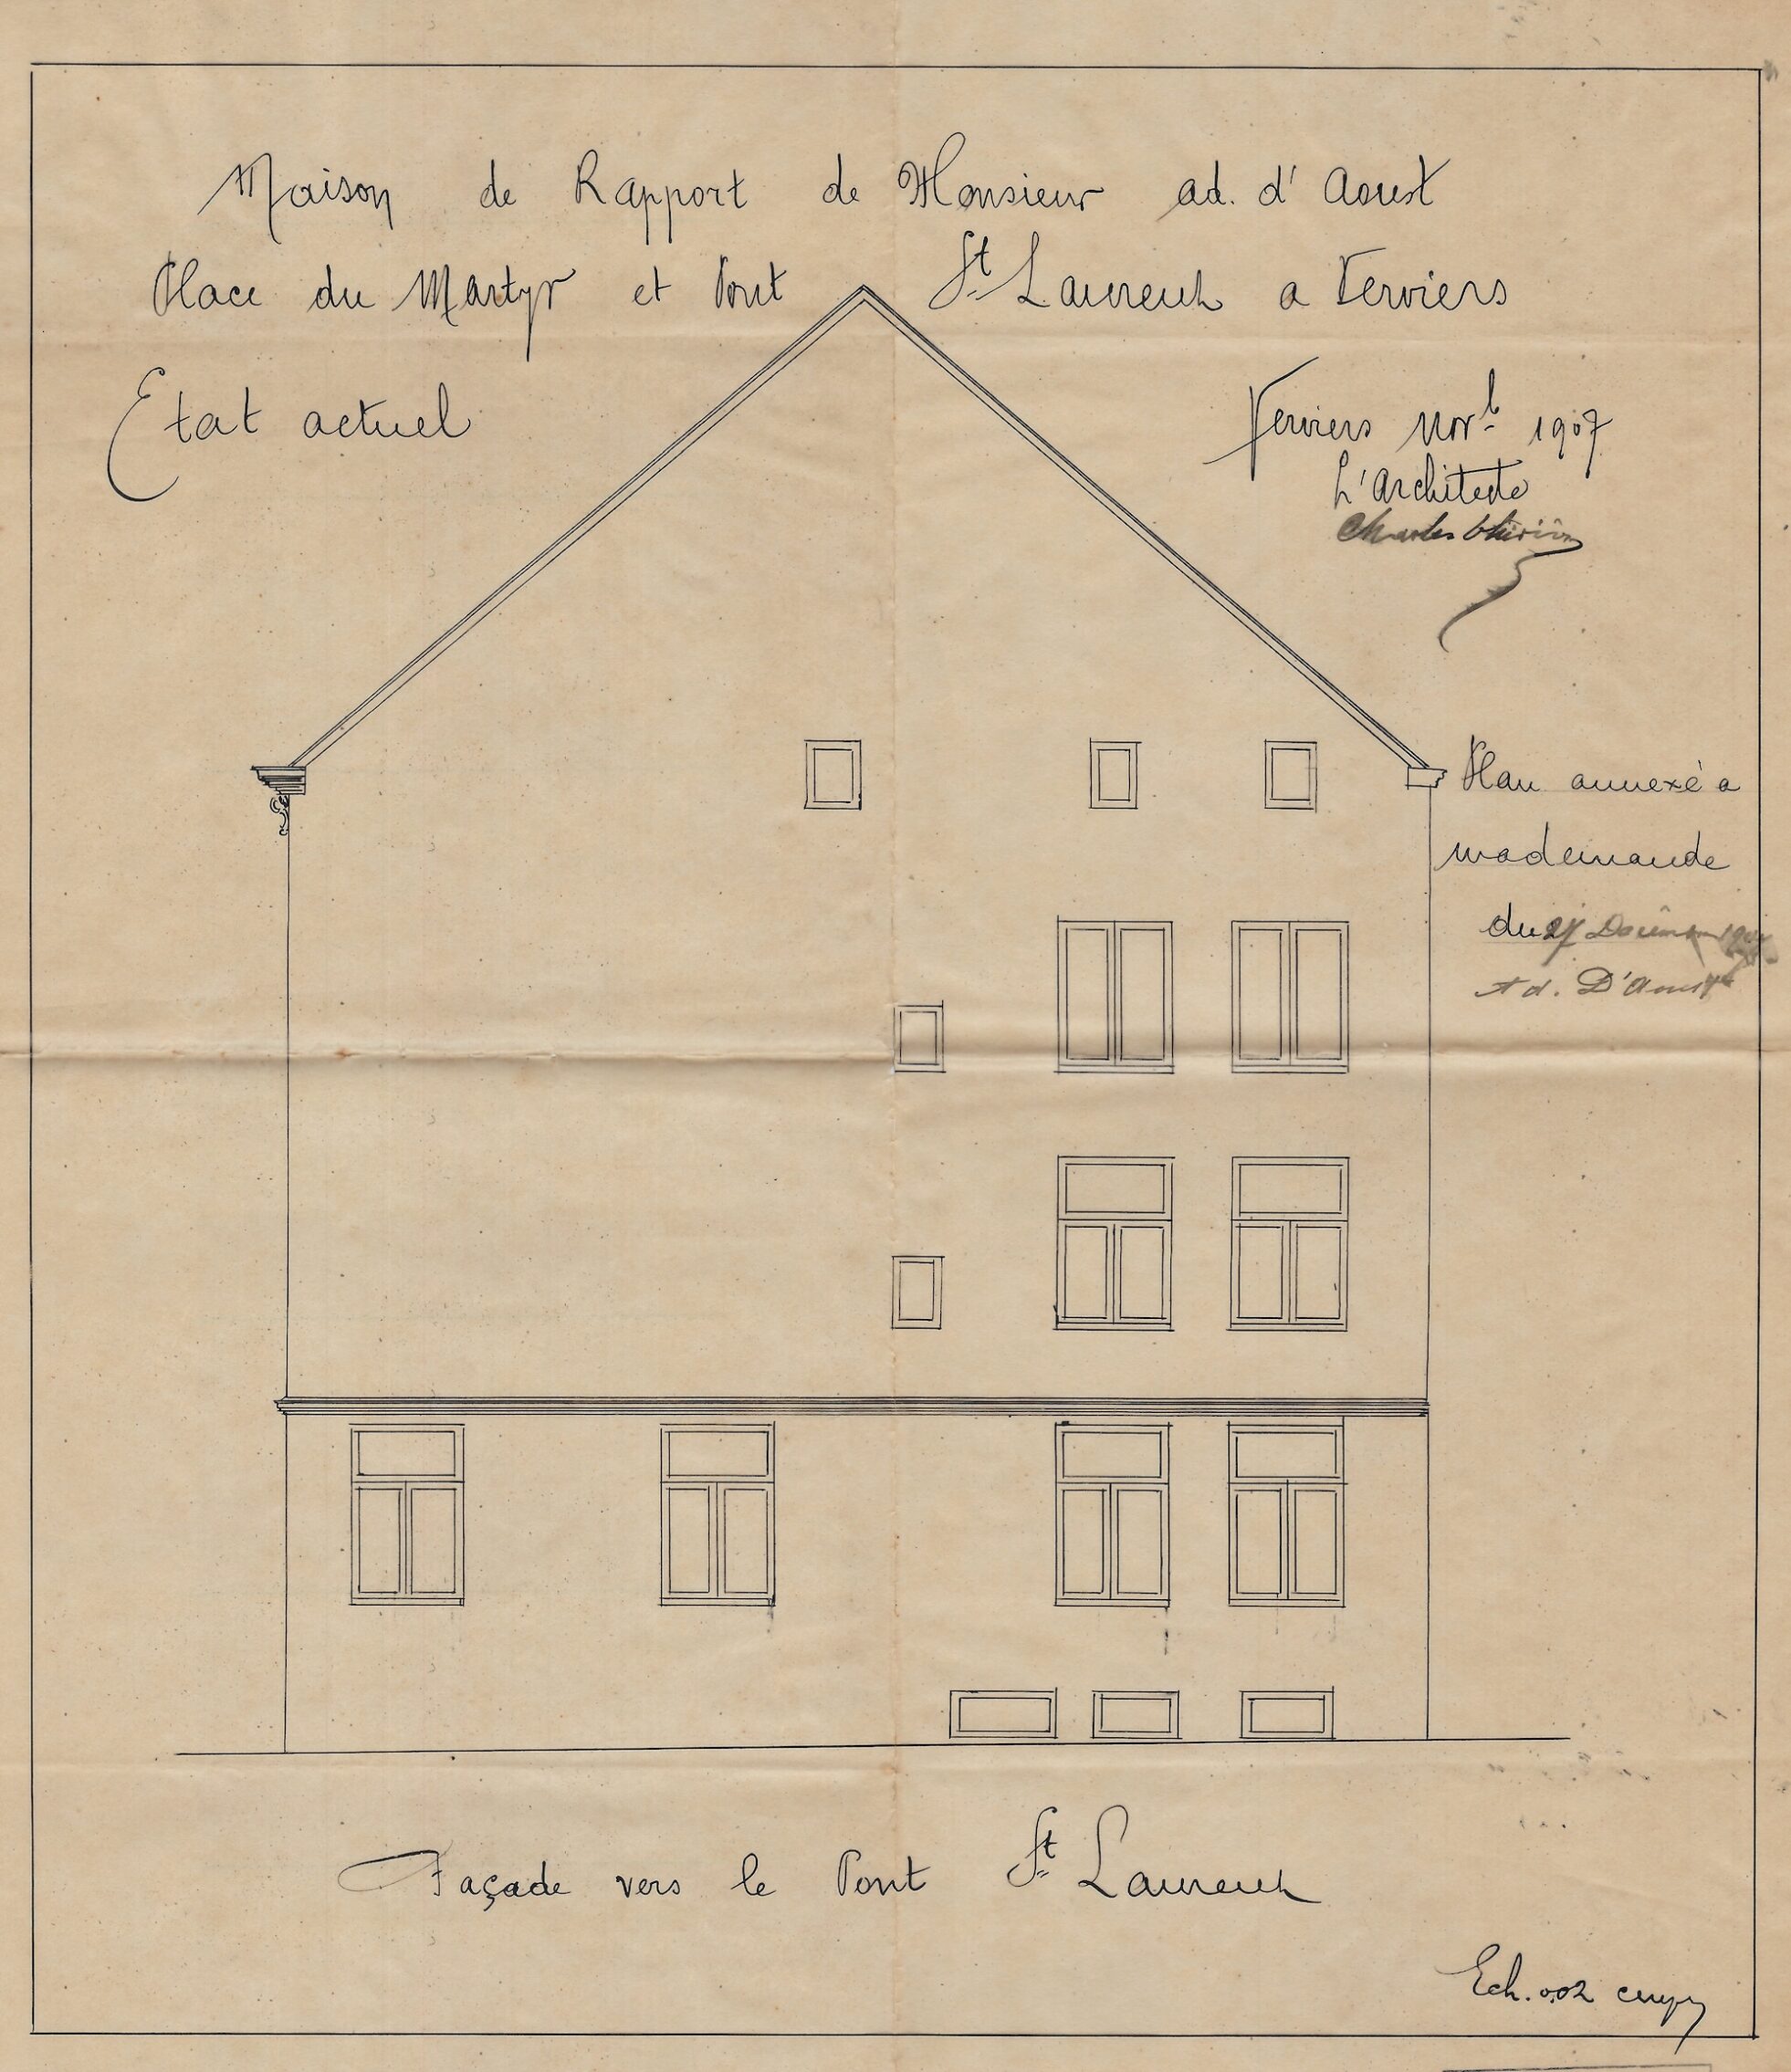 Maison de Rapport de Monsieur ad. d' Aoust
Place du Martyr et Pont St Laurent a Verviers
Etat actuel
Verviers Novb 1907
L'Architecte
Charles
Plan annexé a
ma demande
du 27
Ad. D'Aoust
Façade vers le Pont St Laurent
Ech. 0.02